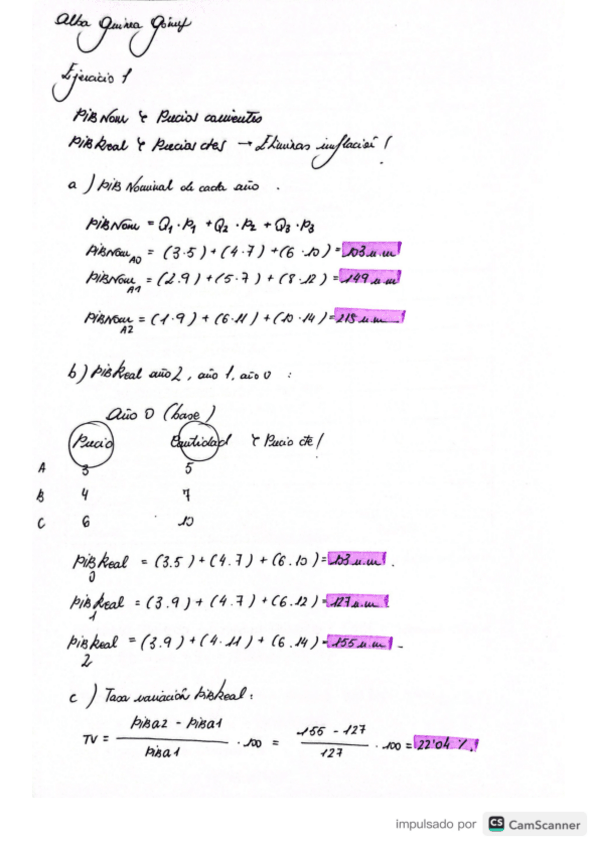 Alba Guinea Gómez
Ejercicio 1
PIBNom ↳ Precios corrientes
PIBReal ↳ Precios ctes → Eliminas inflación!
a) PIB Nominal de cada año.
PIBNom = Q₁·P₁ + Q₂·P₂ + Q₃·P₃
PIBNom A0 = (3·5) + (4·7) + (6·10) = 103 u.m!
PIBNom A1 = (2·9) + (5·7) + (8·12) = 149 u.m!
PIBNom A2 = (1·9) + (6·11) + (10·14) = 215 u.m!
b) PIBReal año 2, año 1, año 0 :
Año 0 (base)
Precio Cantidad ↳ Precio cte!
A 3 5
B 4 7
C 6 10
PIBReal 0 = (3·5) + (4·7) + (6·10) = 103 u.m! .
PIBReal 1 = (3·9) + (4·7) + (6·12) = 127 u.m!
PIBReal 2 = (3·9) + (4·11) + (6·14) = 155 u.m! .
c) Tasa variación PIBReal:
TV = PIBa2 - PIBa1 / PIBa1 · 100 = 155 - 127 / 127 · 100 = 22'04 %!
impulsado por CS CamScanner